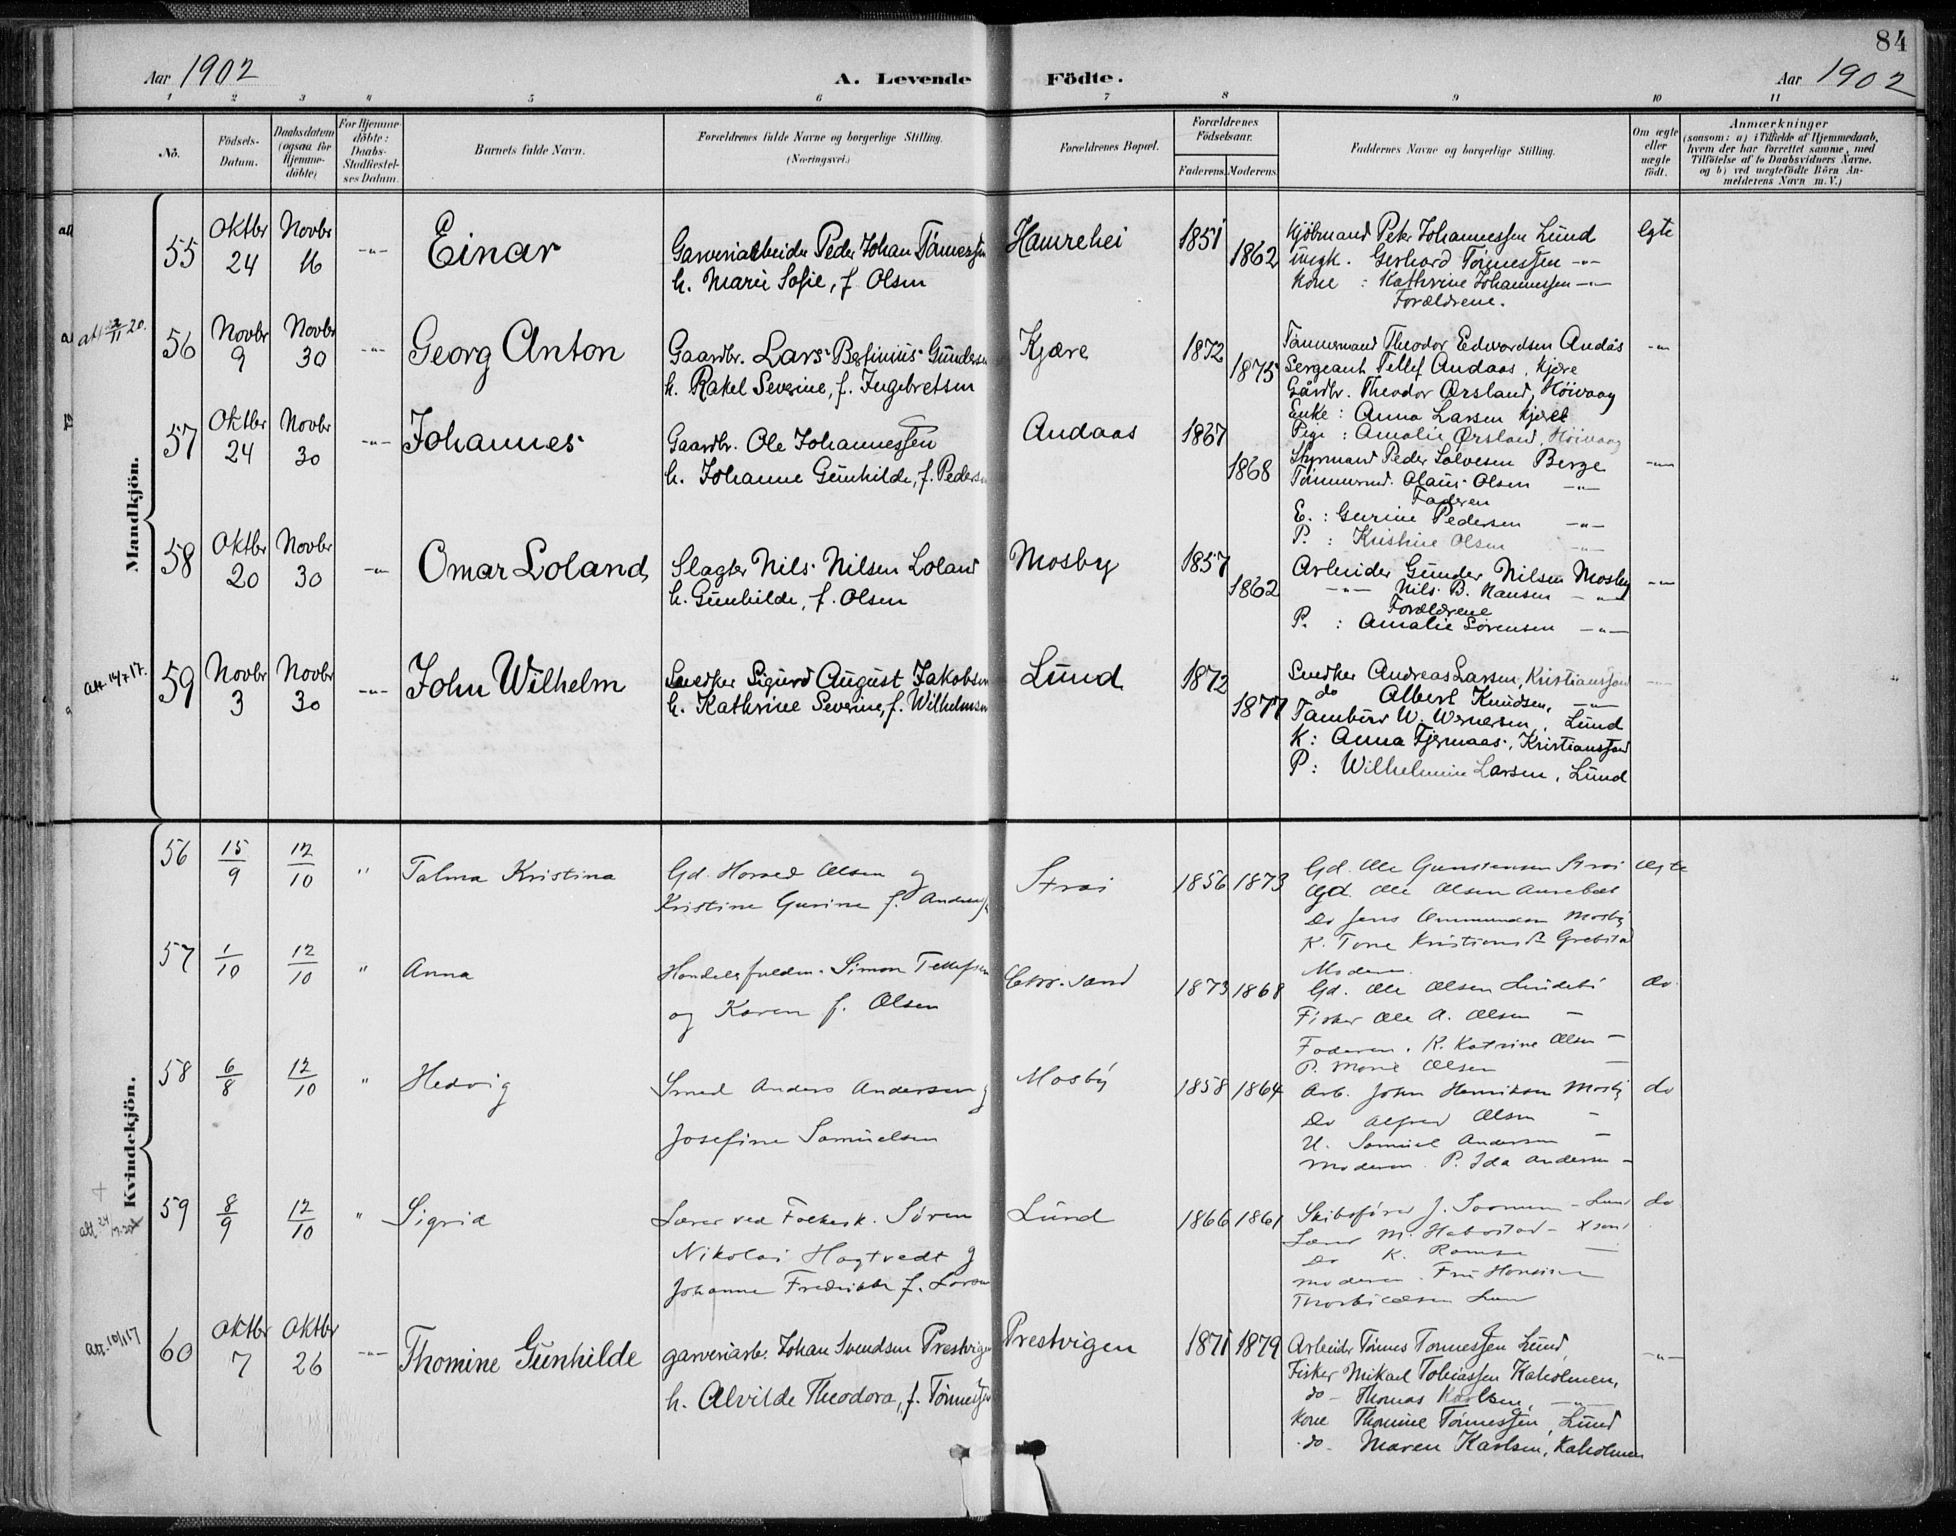 84
Aar 1902
A. Levende Födte.
Aar 1902
1 2 3 4 5 6 7 8 9 10 11
No.
Födsels-Datum.
Daabsdatum (ogsaa for Hjemme-döbte)
For Hjemme-döbte: Daabs-Stadfæstel-ses Datum.
Barnets fulde Navn.
Forældrenes fulde Navne og borgerlige Stilling. (Næringsvei.)
Forældrenes Bopæl.
Forældrenes Födselsaar.
Faderens. Moderens.
Faddernes Navne og borgerlige Stilling.
Om ægte eller uægte födt.
Anmærkninger
(saasom: a) i Tilfælde af Hjemmedaab,
hvem der har forrettet samme, med
Tilföielse af to Daabsvidners Navne.
og b) ved uægtefödte Börn An-
melderens Navn m.V.)
Mandkjön.
55 Oktbr 24 Novbr 16 -"- Einar
Garveriarbeider Peder Johan Tönnessen
h. Marie Sofie, f. Olsen
Hamrehei 1851 1862
Kjöbmand Peter Johannessen Lund
Ungk. Gerhard Tönnessen -"-
Kone : Kathrine Johannessen -"-
Forældrene.
Egte
56 Novbr 9 Novbr 30 -"- Georg Anton
Gaardbr. Lars Befinius Gundersen
h. Rakel Severine, f. Ingebretsen
Kjære 1872 1875
Tömmermand Theodor Edvardsen Andås
Sergeant Tellef Andaas, Kjære
Gårdbr. Theodor Ørsland, Höivaag
Enke : Anna Larsen Kjære
Pige : Amalie Ørsland, Höivaag
-"-
57 Oktbr 24 Novbr 30 -"- Johannes
Gaardbr. Ole Johannessen
h. Johanne Gunhilde, f. Pedersen
Andaas 1867 1868
Styrmand Peder Salvesen Berge
Tömmermd. Olaus Olsen -"-
Faderen
E. : Gurine Pedersen -"-
P. : Kristine Olsen -"-
-"-
58 Oktbr 20 Novbr 30 -"- Omar Loland
Slagter Nils Nilsen Loland
h. Gunhilde, f. Olsen
Mosby 1857 1862
Arbeider Gunder Nilsen Mosby
-"- Nils B. Hansen -"-
Forældrene
P. : Amalie Sörensen -"-
-"-
att. 14/7 17.
59 Novbr 3 Novbr 30 -"- John Wilhelm
Snedker Sigurd August Jakobsen
h. Kathrine Severine, f. Wilhelmsen
Lund 1872 1877
Snedker Andreas Larsen, Kristianssand
do Albert Knudsen, -"-
Tambur W. Wernersen, Lund
K: Anna Fjermaas, Kristianssand
P: Wilhelmine Larsen, Lund
-"-
Kvindekjön.
56 15/9 12/10 " Talma Kristina
Gd. Olsen og
Kristine Gurine f.
Strai 1856 1873
Gd. Ole Gunstensen Strai
Gd. Ole Olsen
Do Jens Ommundsen Mosby
K. Tone
Moderen.
Ægte
57 1/10 12/10 " Anna
Simon Tellefsen
og Karen f. Olsen
Chr.sand 1873 1868
Gd. Ole Olsen
Fisker Ole A. Olsen -
Faderen. K. Katrine Olsen -
P. Marie Olsen -
do
58 6/8 12/10 " Hedvig
Smed Anders Andersen og
Josefine Samuelsen
Mosby 1858 1864
Arb. John Henriksen Mosby
Do Alfred Olsen -
U. Samuel Andersen -
Moderen. P. Ida Andersen -
do
59 8/9 12/10 " Sigrid
Lærer ved Folkesk. Sören
Nikolai Hagtvedt og
Johanne Fredrikke f.
Lund 1866 1861
Skibsförer J.
Lærer M.
Do K. -
Moderen. Fru
do
att. 10/1 17
60 Oktbr 7 Oktbr 26 -"- Thomine Gunhilde
garveriarb. Johan Svendsen Prestvigen
h. Alvilde Theodora, f. Tönnessen
Prestvigen 1871 1879
Arbeider Tönnes Tönnessen Lund,
Fisker Mikael Tobiassen Kaholmen,
do - Thomas Karlsen, -"-
Kone Thomine Tönnessen, Lund
do - Maren Karlsen, Kaholmen
-"-